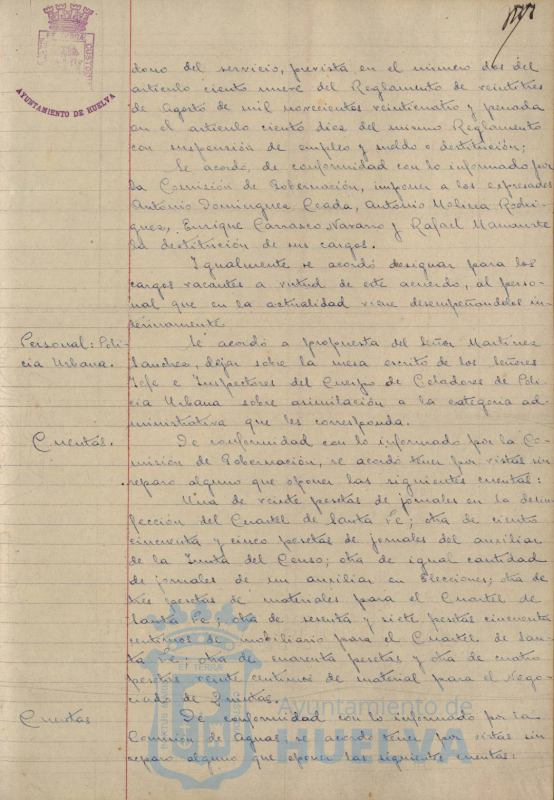 AYUNTAMIENTO DE HUELVA
dono del servicio, prevista en el número dos del
artículo ciento nueve del Reglamento de veintitrés
de Agosto de mil novecientos veinticuatro y penada
en el artículo ciento diez del mismo Reglamento
con suspensión de empleo y sueldo o destitución;
Se acordo, de conformidad con lo informado por
la Comisión de Gobernación, imponer a los expresados
Antonio Dominguez Ceada, Antonio Molina Rodri-
guez, Enrique Carrasco Navarro y Rafael
la destitución de sus cargos.
Igualmente se acordó designar para los
cargos vacantes a virtud de este acuerdo, al perso-
nal que en la actualidad viene desempeñandolos in-
terinamente
Personal: Poli-
cia Urbana.
Se acordó a propuesta del Señor Martinez
Sanchez, dejar sobre la mesa escrito de los Señores
Jefe e Inspectores del Cuerpo de Celadores de Poli-
cia Urbana sobre asimilación a la categoria ad-
ministrativa que les corresponda.
Cuentas.
De conformidad con lo informado por la Co-
misión de Gobernación, se acordó tener por vistas sin
reparo alguno que oponer las siguientes cuentas:
Una de veinte pesetas de jornales en la desin-
fección del Cuartel de Santa Fe; otra de ciento
cincuenta y cinco pesetas de jornales del auxiliar
de la Junta del Censo; otra de igual cantidad
de jornales de un auxiliar en Elecciones; otra de
tres pesetas de materiales para el Cuartel de
Santa Fe; otra de sesenta y siete pesetas cincuenta
centimos de mobiliario para el Cuartel de San-
ta Fe; otra de cuarenta pesetas y otra de cuatro
pesetas veinte centimos de material para el Nego-
ciado de Quintas.
Cuentas
De conformidad con lo informado por la
Comisión de Aguas, se acordó tener por vistas sin
reparo alguno que oponer las siguientes cuentas:
Ayuntamiento de
HUELVA